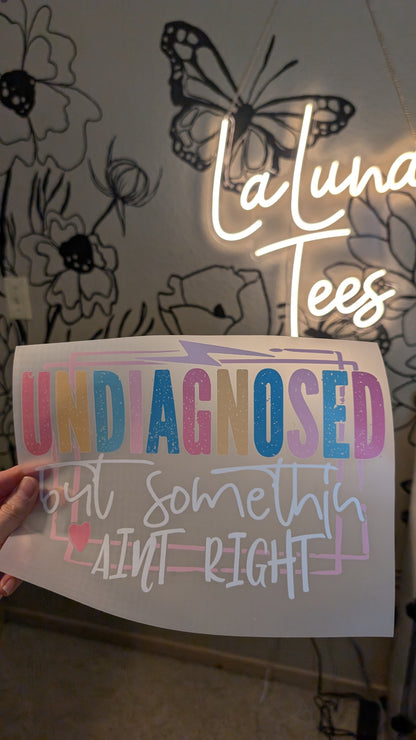 La Luna
Tees
UNDIAGNOSED
but somethin
AINT RIGHT